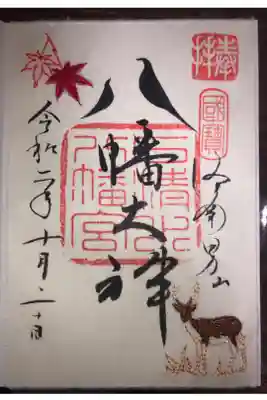 奉拝
國寶
男山
八幡大神
石清水
八幡宮
令和二年十月二十日